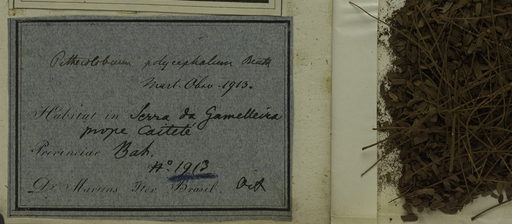 Pithecolobium polycephalum Benth
Mart. Obs. 1913.
Habitat in Serra da Gamelleira
prope Caiteté
Provinciae Bah.
No. 1913
Dr. Martius Iter Brasil. Oct